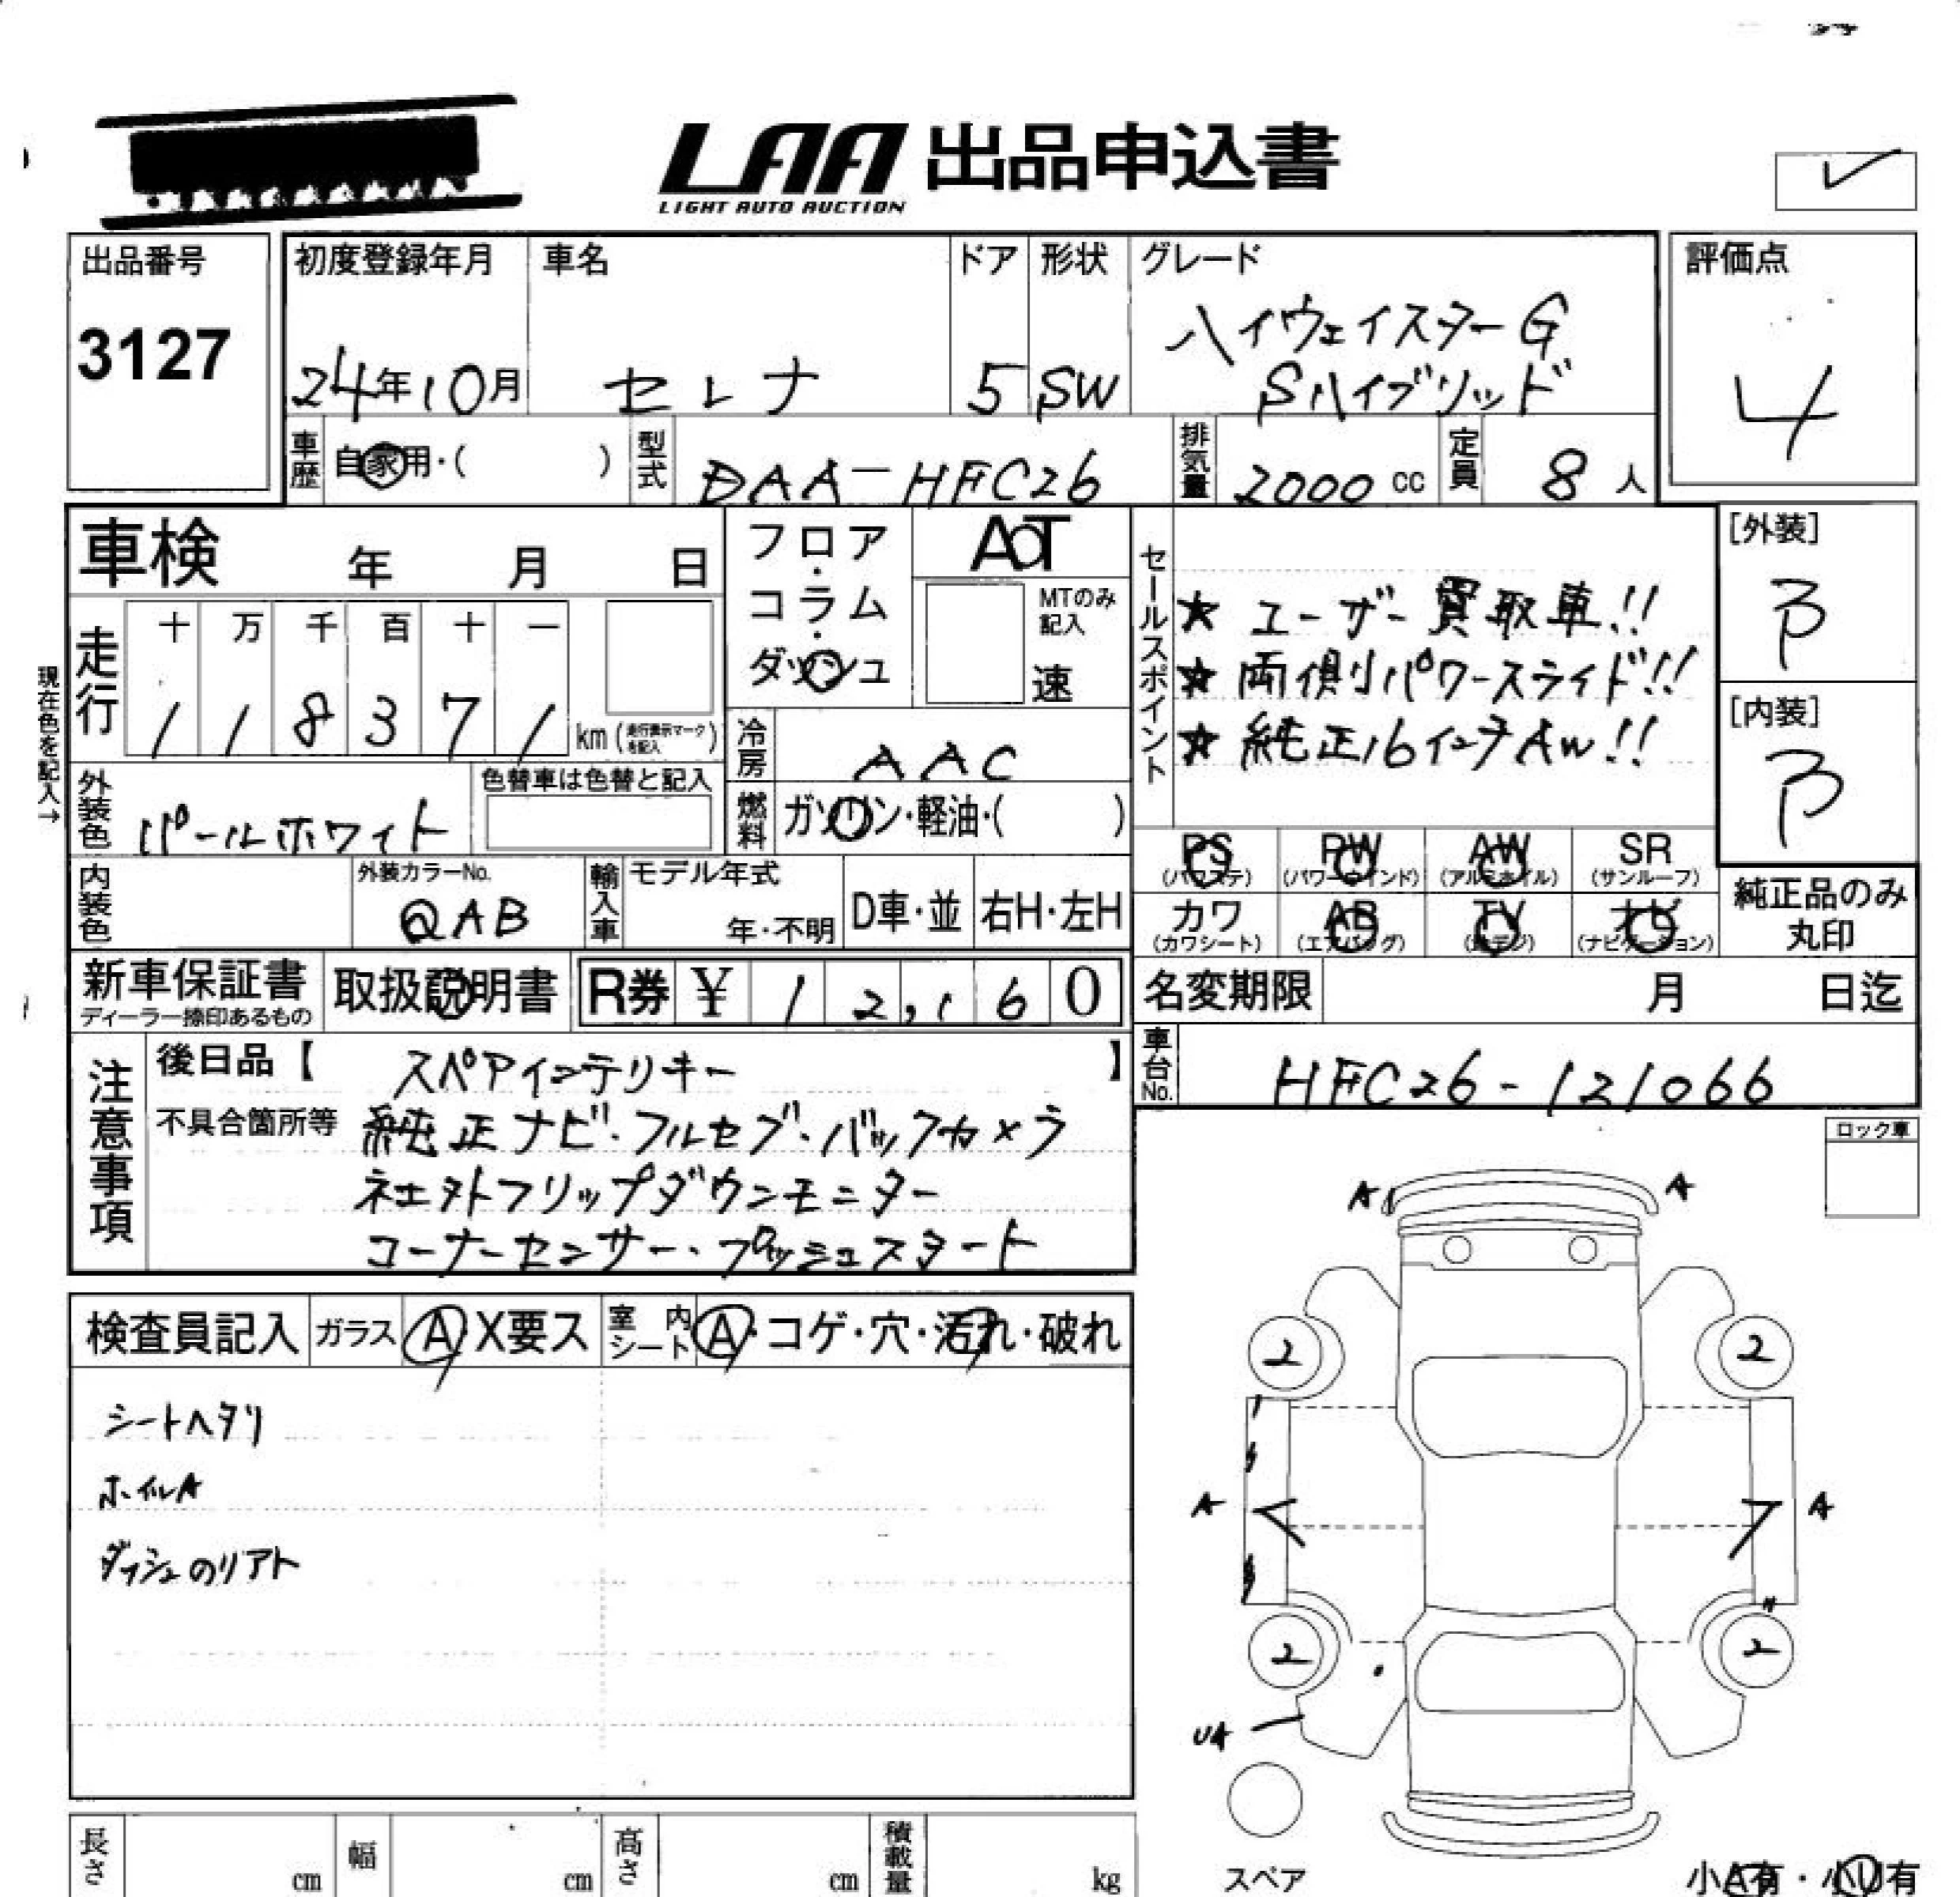 LAA 出品申込書
LIGHT AUTO AUCTION
出品番号
3127
初度登録年月
24年10月
車名
セレナ
ドア
5
形状
SW
グレード
ハイウェイスターG
Sハイブリッド
評価点
4
車歴
自家用・( )
型式
DAA-HFC26
排気量
2000 cc
定員
8 人
車検 年 月 日
フロア・コラム・ダッシュ
AT
MTのみ記入
速
セールスポイント
★ ユーザー買取車!!
★ 両側パワースライド!!
★ 純正16インチAW!!
[外装]
B
[内装]
B
現在色を記入→
走行
十 万 千 百 十 一
1 1 8 3 7 1 km (走行表示マークを記入)
冷房
AAC
外装色
パールホワイト
色替車は色替と記入
燃料
ガソリン・軽油・( )
PS (パワステ)
PW (パワーウインド)
AW (アルミホイル)
SR (サンルーフ)
カワ (カワシート)
AB (エアバッグ)
TV (地デジ)
ナビ (ナビゲーション)
純正品のみ丸印
内装色
外装カラーNo.
QAB
輸入車
モデル年式
年・不明
D車・並
右H・左H
新車保証書
ディーラー捺印あるもの
取扱説明書
R券 ¥ 12,160
名変期限 月 日迄
車台No.
HFC26-121066
注意事項
後日品【 スペアインテリキー 】
不具合箇所等 純正ナビ・フルセブ・バックカメラ
フリップダウンモニター
コーナーセンサー・プッシュスタート
ロック車
検査員記入
ガラス A X要ス
室内シート A・コゲ・穴・汚れ・破れ
シートヘタリ
ホイルA
ダッシュのリアト
A A
2 2
A A
2 2
UA
スペア
小A有・小U有
長さ cm
幅 cm
高さ cm
積載量 kg